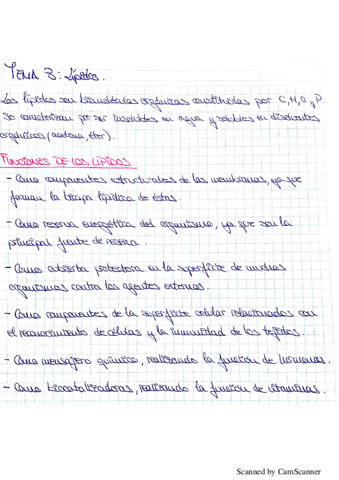 TEMA 3: Lípidos.
Los lípidos son biomoléculas orgánicas constituidas por C, H, O y P.
Se caracterizan por ser insolubles en agua y solubles en disolventes
orgánicos (acetona, éter).
FUNCIONES DE LOS LÍPIDOS
- Como componentes estructurales de las membranas, ya que
forman la bicapa lipídica de éstas.
- Como reserva energética del organismo, ya que son la
principal fuente de reserva.
- Como cubierta protectora en la superficie de muchos
organismos contra los agentes externos.
- Como componentes de la superficie celular relacionados con
el reconocimiento de células y la inmunidad de los tejidos.
- Como mensajero químico, realizando la función de hormonas.
- Como biocatalizadoras, realizando la función de vitaminas.
Scanned by CamScanner